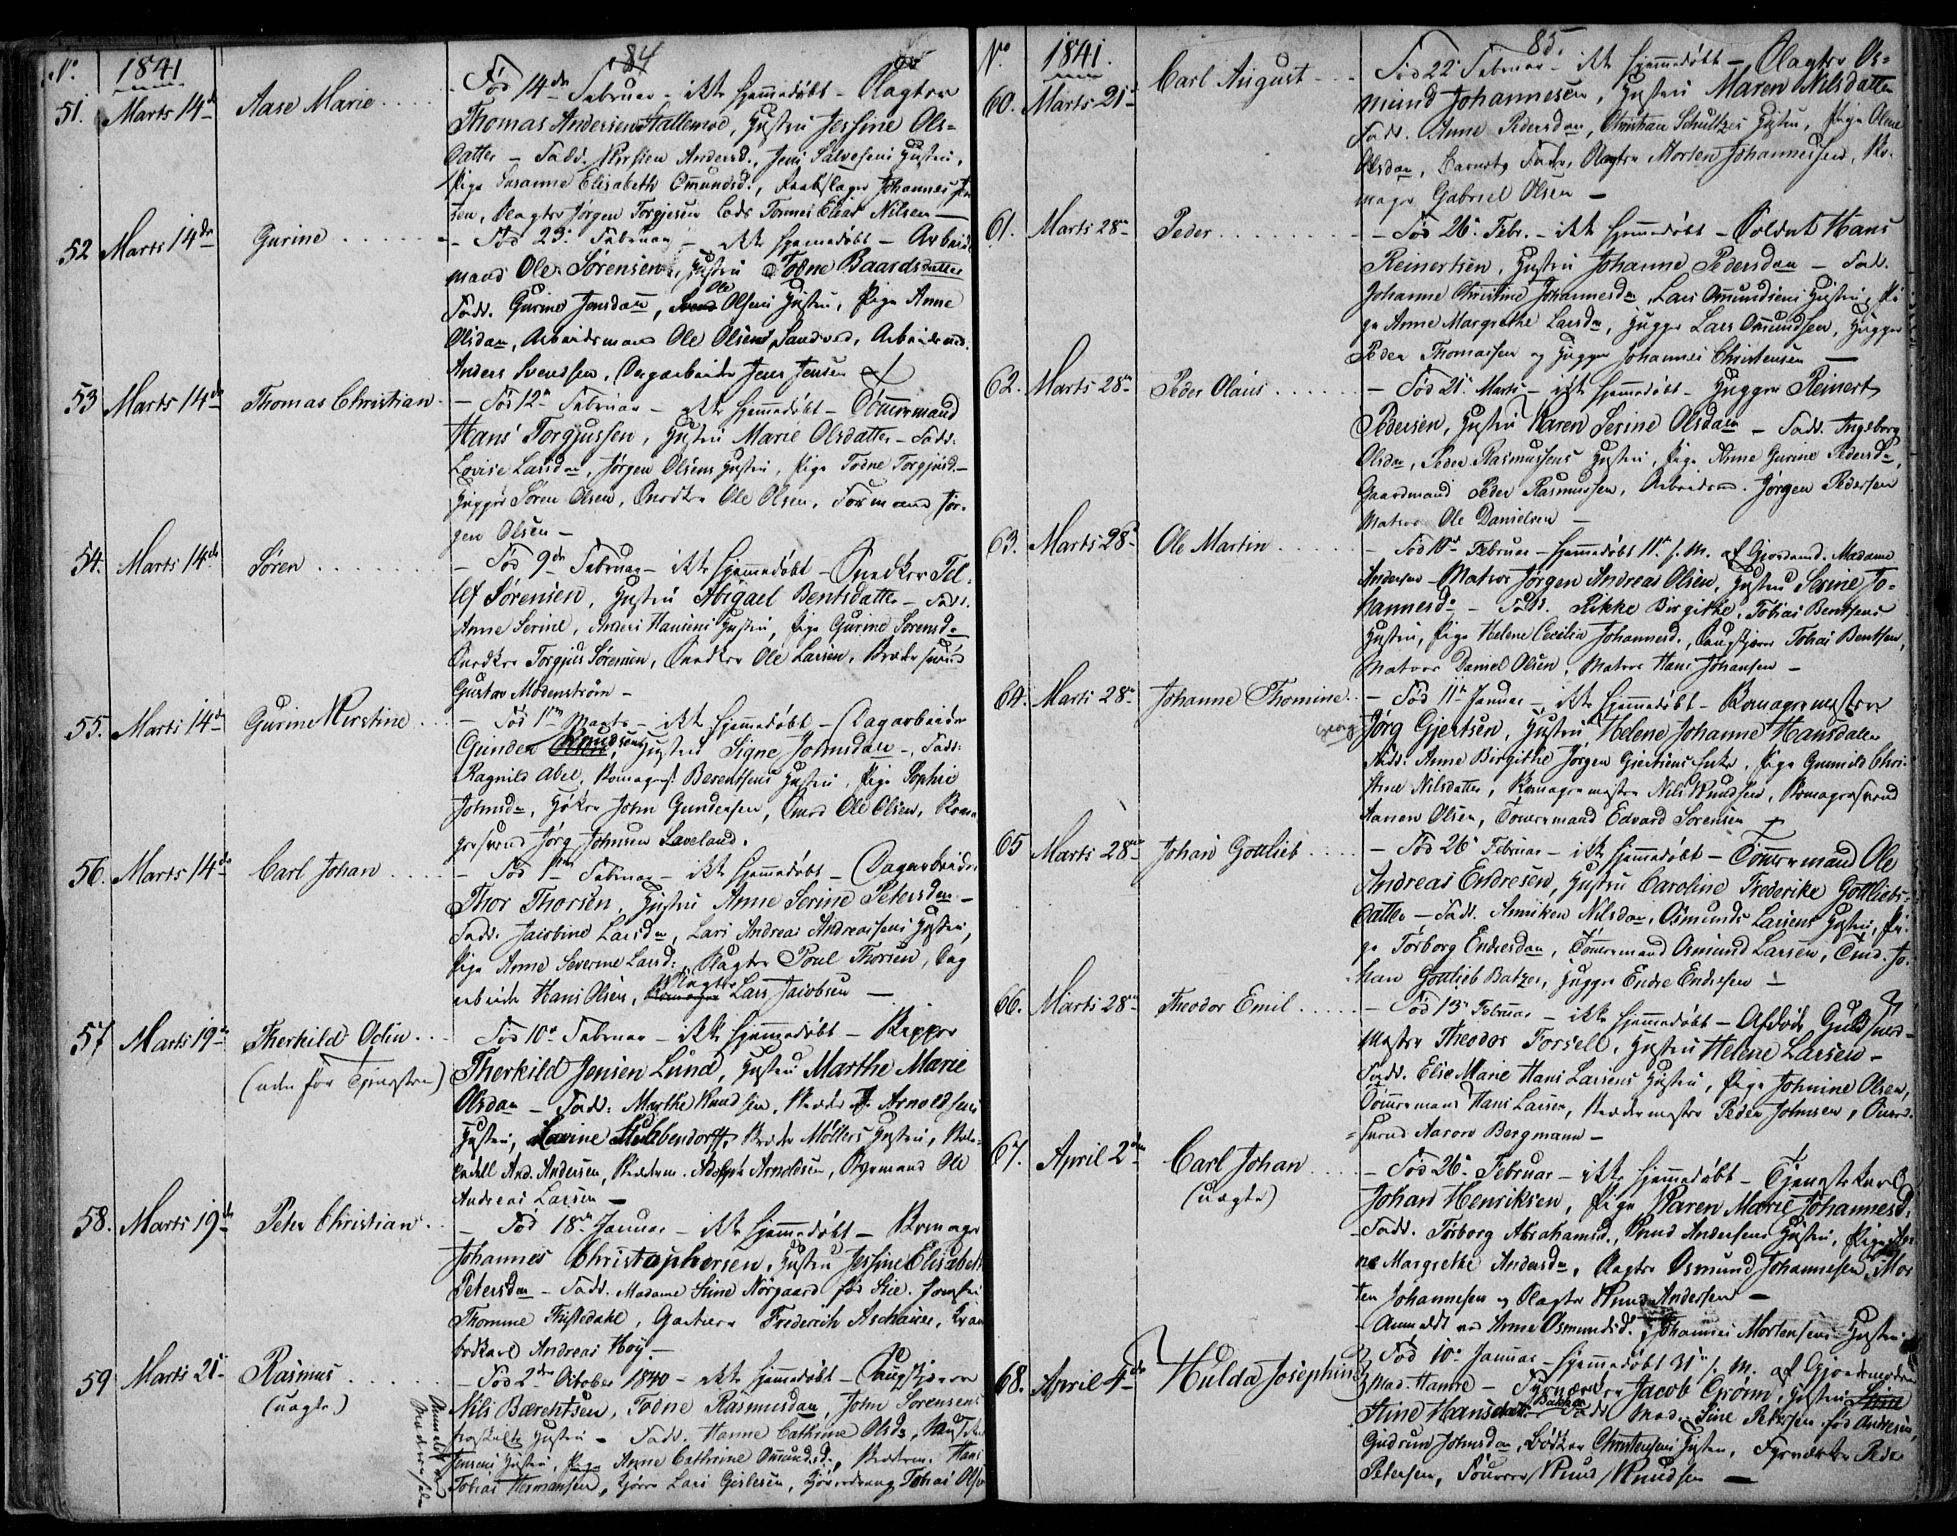 84
No. 1841
51. Marts 14de Aase Marie . . . . Fød 14de Februar – ikke hjemmedøbt – Slagter
Thomas Andersen Hallemoe, Hustru Jessine Ols-
datter – Fadd. Kirstien Andersd., Jens Salvesens Hustru,
Pige Susanne Elisabeth Omundsd., Reebslager Johannes
sen, Slagter Jørgen Torgjesen Lods Tønnes Elias Nilsen –
52 Marts 14de Gurine . . . . – Fød 23. Februar – ikke hjemmedøbt – Arbeids
mand Ole Sørensen, Hustru Todne Baardsdatter
Fadd. Gurine Jensdatt, Ole Olsens Hustru, Pige Anne
Olsdatt, Arbeidsmand Ole Olsen Sandved, Arbeidsmd.
Anders Svendsen, Dagarbeider Jens Jensen –
53 Marts 14de Thomas Christian . – Fød 12te Februar – ikke hjemmedøbt – Tømmermand
Hans Torgjussen, Hustru Marie Olsdatter – Fadd.
Lovise Larsdatt, Jørgen Olsens Hustru, Pige Todne Torgjusd. –
Hugger Søren Olsen, Snedker Ole Olsen, Formand Jør-
gen Olsen –
54. Marts 14de Søren . . . . – Fød 9de Februar – ikke hjemmedøbt – Snedker Tel-
lef Sørensen, Hustru Abigael Bentsdatter – Fadd.
Anne Serine, Anders Hansens Hustru, Pige Gurine Sørensd.
Snedker Torgjus Sørensen, Snedker Ole Larsen,
Gustav Modenstrøm –
55. Marts 14de Gurine Kirstine . . – Fød 1ste Marts – ikke hjemmedøbt – Dagarbeider
Gunder Knudsen, Hustru Signe Johnsdatt – Fadd.
Ragnild Abel, Berentsens Hustru, Pige Sophie
Johnsd., John Gundersen, Smed Ole Olsen, Koma-
gersvend Jørg Johnsen Laveland.
56. Marts 14de Carl Johan . . . – Fød 1ste Februar – ikke hjemmedøbt – Dagarbeider
Thor Thorsen, Hustru Anne Serine Petersdatt –
Fadd. Jacobine Larsd., Lars Andreas Andreassens Hustru,
Pige Anne Severine Larsd., Slagter Poul Thorsen, Dag
arbeider Hans Olsen, Slagter Lars Jacobsen –
57 Marts 19de Therkild Odin . . Fød 10de Februar – ikke hjemmedøbt – Skipper
(uden for Tjenesten) Therkild Jensen Lund, Hustru Marthe Marie
Olsdatt – Fadd. Marthe Knudsen, Arnoldsens
Hustru, Lovine Møllers Hustru,
And. Andersen, Adolph Arnoldsen, Styrmand Ole
Andreas Larsen –
58. Marts 19de Peter Christian . . – Fød 18de Januar – ikke hjemmedøbt – Komager
Johannes Christophersen, Hustru Jessine Elisabeth
Petersdatt – Fadd. Madame Stine Nörgaard
Thomme Gartner Frederich Aschauer,
Andreas Høy. –
59 Marts 21. Rasmus . . . . – Fød 2den October 1840 – ikke hjemmedøbt –
(uægte) Nils Bærentsen, Todne Rasmusdatt, John Sørensens
Hustru – Fadd. Hanne Cathrine Olsd.,
Jensens Hustru, Pige Anne Cathrine Omundsd., Hans
Tobias Hermansen, Lars Gislesen, Tobias Olsen
85.
No. 1841.
60. Marts 21. Carl August . . Fød 22. Februar – ikke hjemmedøbt – Slagter Os-
mund Johannesen, Hustru Maren Nilsdatter
Fadd. Anne Pedersdatt, Christian Schultzes Hustru, Pige Olene
Olsdatt, Barnets Fader, Slagter Morten Johannessen, Ko-
mager Gabriel Olsen –
61. Marts 28de Peder . . . . – Fød 26. Febr. – ikke hjemmedøbt – Soldat Hans
Reinertsen, Hustru Johanne Pedersdatt – Fadd.
Johanne Christine Johannesd., Lars Omundsens Hustru, Pi-
ge Anne Margrethe Larsd., Hugger Lars Omundsen, Hugger
Peder Thomassen og Hugger Johannes Christensen –
62. Marts 28de Peder Olaus . . . – Fød 21. Marts – ikke hjemmedøbt – Hugger Reinert
Pedersen, Hustru Karen Serine Olsdatt – Fadd. Ingeborg
Olsd., Peder Rasmussens Hustru, Pige Anne Gurine Pedersd.,
Gaardmand Peder Rasmussen, Arbeidsm. Jørgen Pedersen
Matros Ole Danielsen –
63. Marts 28de Ole Martin . . . – Fød 10de Februar – hjemmedøbt 11te s. M. af Gjordem. Madame
Andersen – Matros Jørgen Andreas Olsen, Hustru Serine Jo-
hannesd. – Fadd. Rikke Birgithe, Tobias Bentsens
Hustru, Pige Helene Cecilia Johannesd., Tobias Bentsen,
Matros Daniel Olsen, Matros Hans Johansen –
64. Marts 28de Johanne Thomine . – Fød 11te Januar – ikke hjemmedøbt – Komagermester
Georg Jørg Gjertsen, Hustru Helene Johanne Hansdatter
Fadd. Anne Birgithe Jørgen Gjertsens Enke, Pige Gunnild Chri-
stine Nilsdatter, Komagermester Nils Knudsen, Komagersvend
Aanon Olsen, Tømmermand Edvard Sørensen
65 Marts 28de Johan Gottlieb . . . – Fød 26. Februar – ikke hjemmedøbt – Tømmermand Ole
Andreas Endresen, Hustru Caroline Frederike Gottliebs-
datter – Fadd. Anniken Nilsdatt, Osmund Larsens Hustru, Pi-
ge Torborg Endresdatt, Tømmermand Osmund Larsen, Smed Jo-
han Gottlieb Batzer, Hugger Endre Endresen –
66. Marts 28de Theodor Emil . . . – Fød 13. Februar – ikke hjemmedøbt – Afdøde
mester Theodor Forsell, Hustru Helene Larsen –
Fadd. Elise Marie Hans Larsens Hustru, Pige Johnine Olsen,
Tømmermand Hans Larsen, Peder Johnsen, Smed-
svend Aaron Bergmann –
67. April 2den Carl Johan . . . – Fød 26. Februar – ikke hjemmedøbt – Tjenestekarl
(uægte) Johan Henriksen, Pige Karen Marie Johannesd.
Fadd. Torborg Abrahamsd., Knud Andersens Hustru, Pige An-
ne Margrethe Andersd., Slagter Osmund Johannesen, Mor
ten Johannesen og Slagter Knud Andersen –
Anmeldt ved Anne Osmundsd., Johannes Mortensens Hustru
68. April 4de Hulda Josephine Fød 10de Januar – hjemmedøbt 31te s. M. af Gjordemoderen
Mad. Hamre – Fyrværker Jacob Grøm, Hustru
Stine Hansdatt. Fadd. Mad. Sine Petersen fød Andersen,
Gudrun Johnsd., Bødker Christensens Hustru, Fyrværker Peder
Petersen, Knud Knudsen –